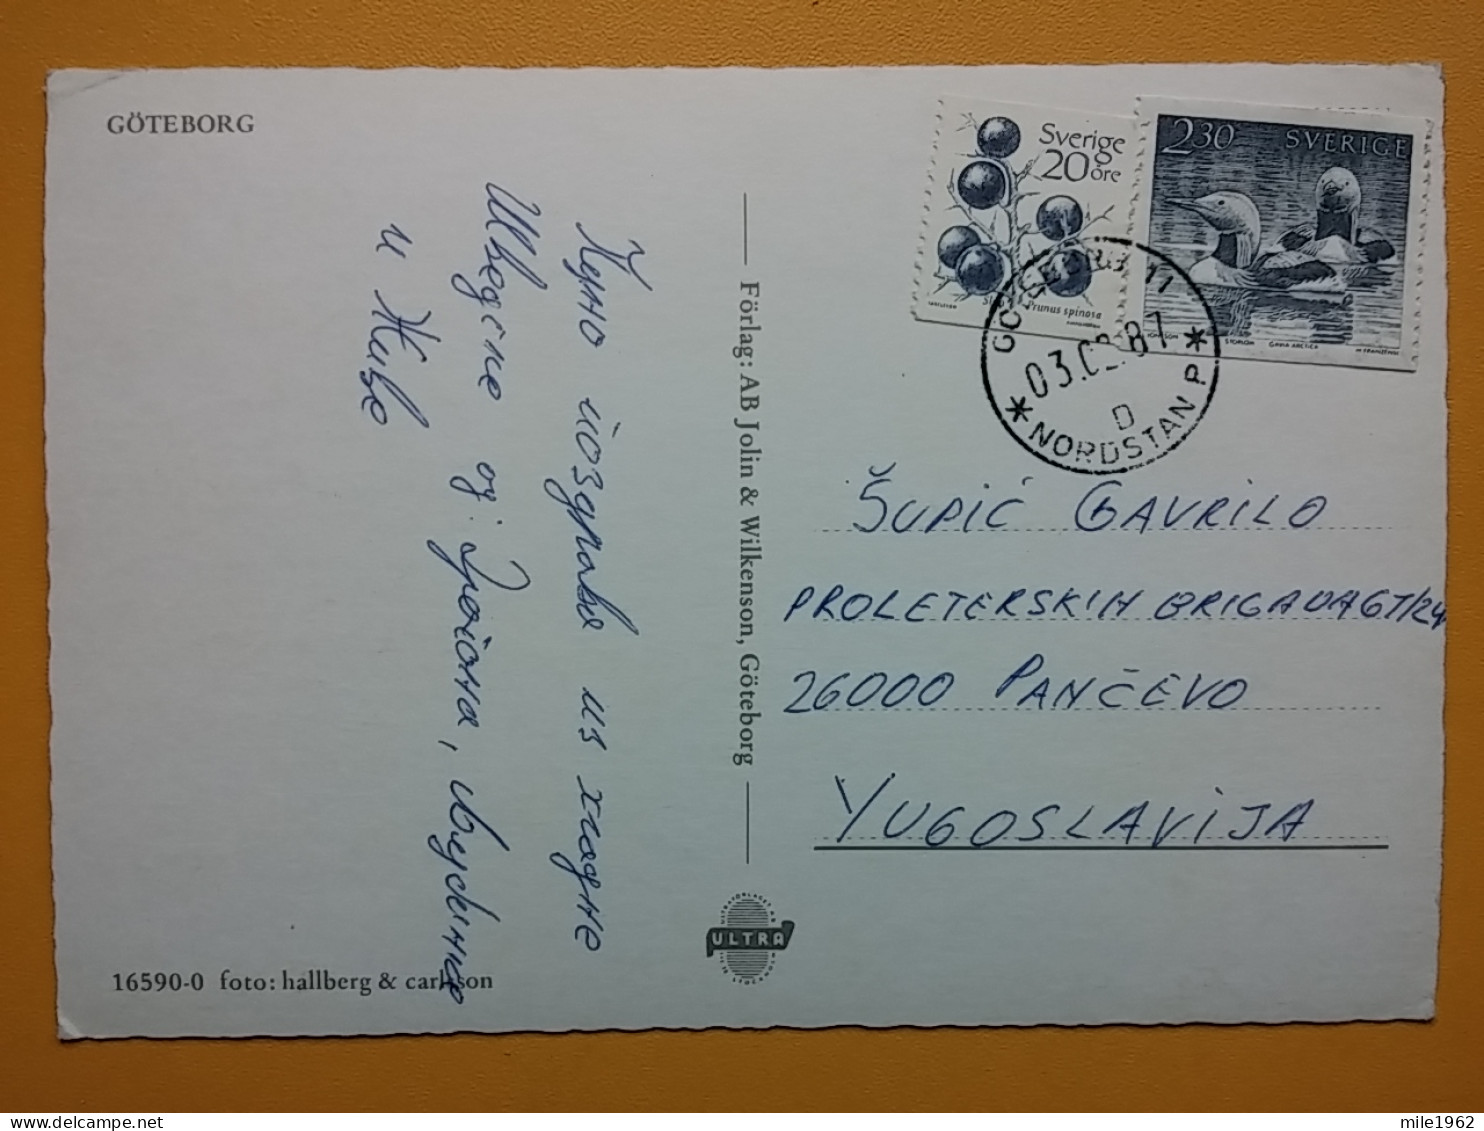 GÖTEBORG
Пуно поздрава из хладне
Шведске од Драгана, Љубинка
и Живе
Förlag: AB Jolin & Wilkenson, Göteborg
16590-0 foto: hallberg & carlsson
ULTRA
Sverige
20 öre
Prunus spinosa
2.30 SVERIGE
GAVIA ARCTICA
GÖTEBORG 11
03.02.87
D
* NORDSTAN P *
ŠUPIĆ GAVRILO
PROLETERSKIH BRIGADA 67/24
26000 PANČEVO
YUGOSLAVIJA
mile1962